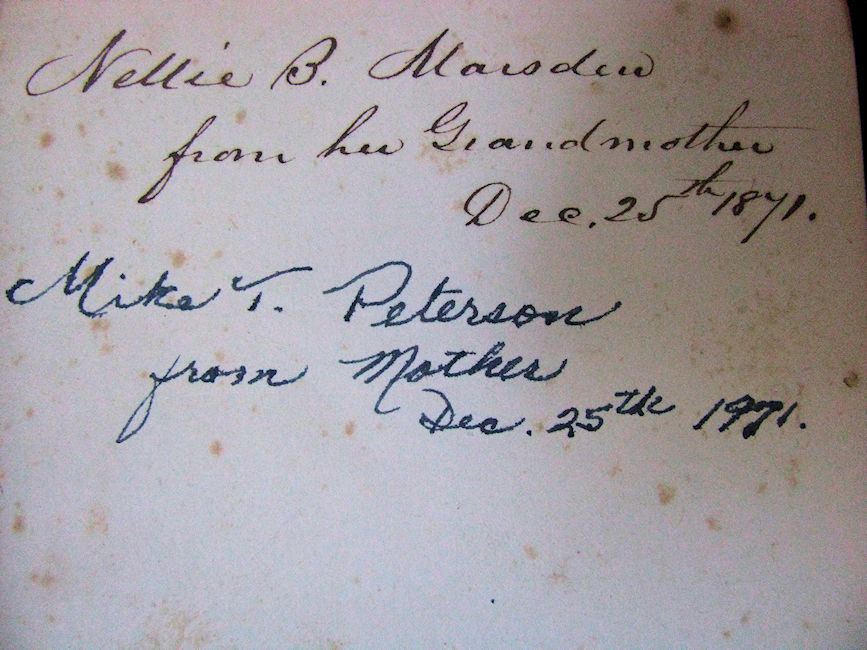 Nellie B. Marsden
from her Grandmother
Dec. 25th 1871.
Mike T. Peterson
from Mother
Dec. 25th 1971.